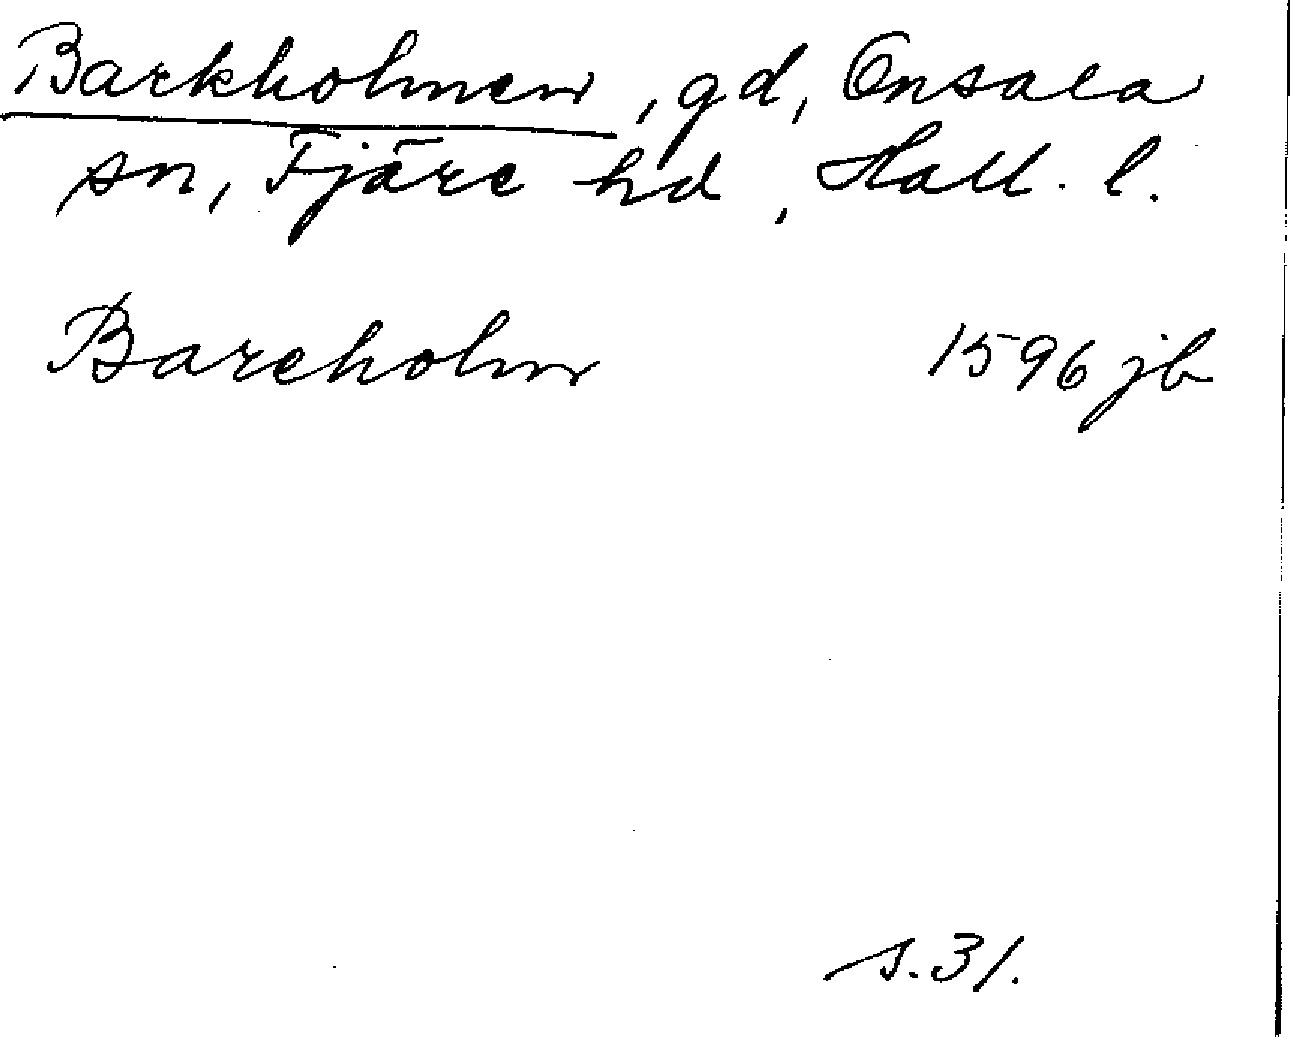 Barkholmen, gd, Onsala
sn, Fjäre hd, Hall. l.
Barcholm 1596 jb
s. 31.